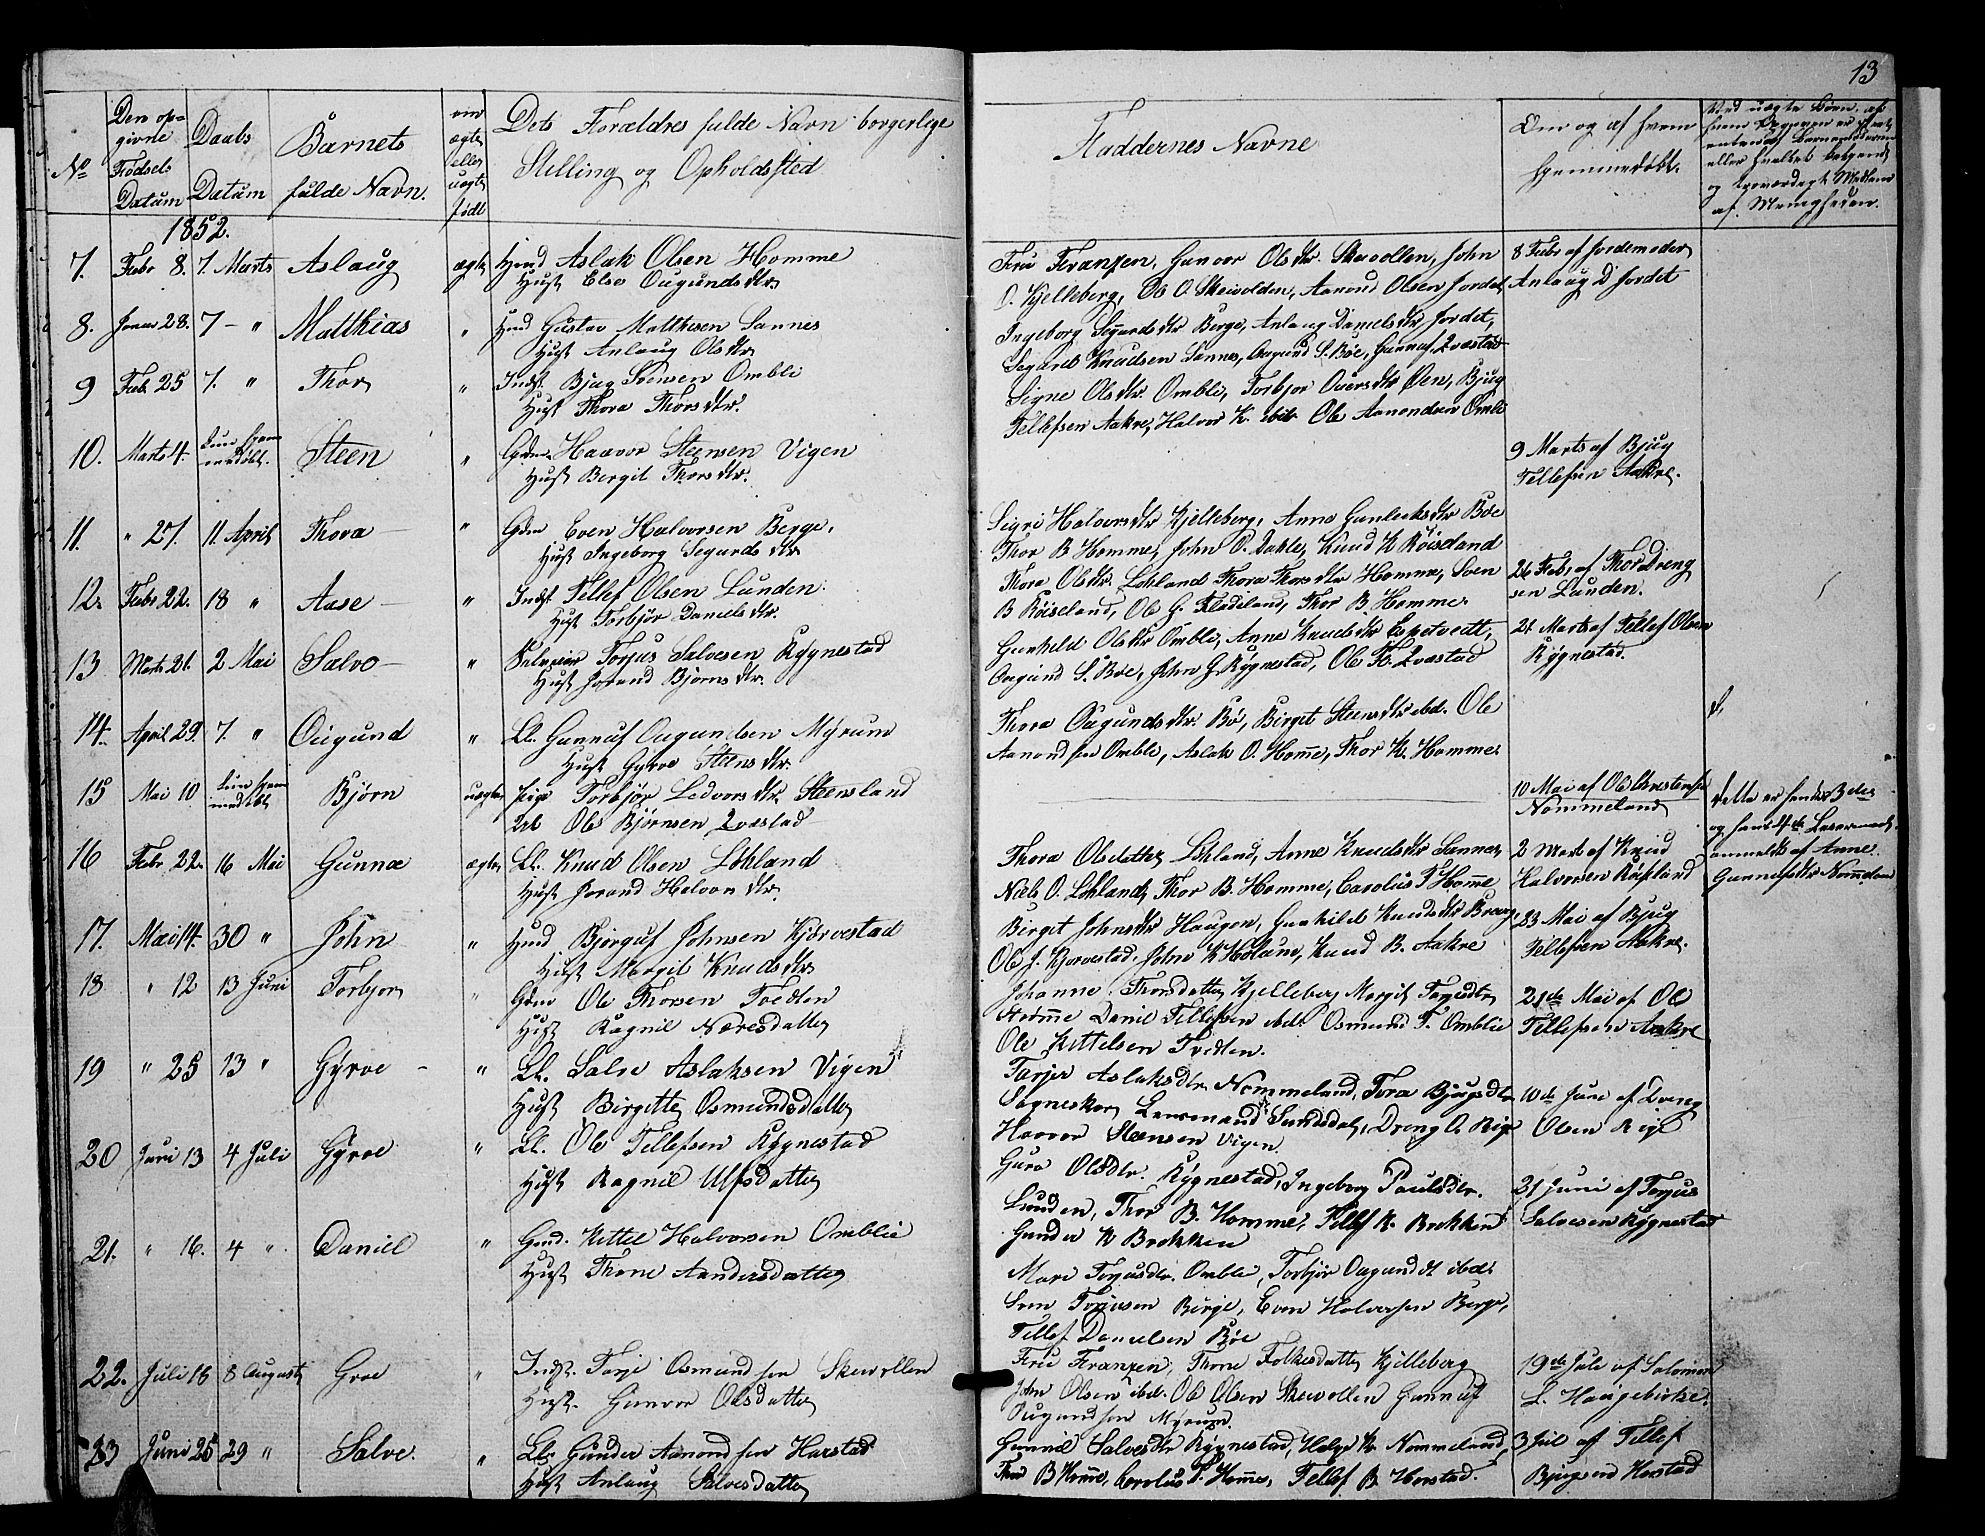 13
No
Den op-
givne
Fødsels
Datum
Daabs
Datum
Barnets
fulde Navn.
om
ægte
eller
uægte
født
Dets Forældres fulde Navn borgerlige
Stilling og Opholdssted
Faddernes Navne
Om og af hvem
hjemmedøbt.
Ved uægte Børn, af
og troværdigt Medlem
af Menigheden.
1852.
7. Febr 8. 7. Marts Aslaug ægte Gmd Aslak Olsen Homme
Hust Else Ougundsdtr
Fru Franzen, Gunvor Olsdtr Skevollen, John
O. Kjelleberg, Ole O. Skeivolden, Aanond Olsen Jordet
8 Febr af Jordemoder
Anlaug D Jordet
8. Januar 28. 7 - " Matthias " Gmd Gustav Matthisen Sannes
Hust Anlaug Olsdtr
Ingeborg Segurdsdtr Berge, Anlaug Danielsdtr Jordet,
Segurd Knudsen Sannes, Ougund S. Bøe, Gunnuf Qvæstad
9 Feb. 25 7. " Thor " Indst. Bjug Svensen Omblie
Hust Thora Thorsdtr.
Signe Olsdtr. Omblie, Torbjor Oversdtr Øen, Bjug
Tellefsen Aakre, Halvor K. ibdt Ole Aanondsen Ombli
10. Marts 4. kun hjem-
medøbt. Steen " Gdm. Haavor Steensen Vigen
Hust Bergit Thorsdtr.
9 Marts af Bjug
Tellefsen Aakre.
11. " 27. 11 April Thora " Gdm Even Halvorsen Berge,
Hust Ingeborg Segurdsdtr
Sigri Halvorsdtr Kjelleberg, Anne Gunleiksdtr Bøe
Thor B Homme, John P. Dahle, Knud K Røisland
12. Febr 22. 18 " Aase " Indst. Tellef Olsen Lunden.
Hust Torbjør Danielsdtr.
Thora Olsdtr. Løbland Thora Thorsdtr Homme, Sven
B Røiseland, Ole G. Fladeland, Thor B. Homme.
26 Feb. af Thor Dreng
sen Lunden.
13 Marts 21. 2 Mai Salvo " Selveier Torjus Salvesen Rygnestad
Hust Jorand Bjørnsdtr.
Gunhild Olsdtr Omblie, Anne Knudsdtr Espetveitt,
Ougund S. Bøe, John G. Rygnestad, Ole Th. Qvæstad
21 Marts af Tellef Olsen
Rygnestad.
14. April 29. 7. " Ougund " Ll. Gunnuf Ougundsen Myrum
Hust Gyroe Steensdtr.
Thora Ougundsdtr. Bø, Birget Steensdtr ibd. Ole
Aanondsen Omblie, Aslak O. Homme, Thor K. Homme
15 Mai 10 kun hjem
medøbt Bjørn uægte Pige Torbjør Ledvorsdtr. Steensland
Ole Bjørnsen Qvæstad
10 Mai af Ole Christensen
Nommeland
Dette er hendes 3die
og hans 4de Leiermaal
anmeldt af Anne
Gunnufsdtr Nommeland
16 Febr 22. 16 Mai Gunnæ ægte Ll. Knud Olsen Løbland
Hust Jorand Halvorsdtr.
Thora Olsdatter Løbland, Anne Knudsdtr Sannes,
Niels O. Løbland, Thor B. Homme, Carolus T Homme
2 Marts af Knud
Halvorsen Røisland
17. Mai 14. 30 " John " Gmd Bjorguf Johnsen Kjørvestad
Hust Margit Knudsdtr
Birget Johnsdtr Haugen, Gunhild Knudsdtr Breive,
Ole J. Kjørvestad, John K Holane, Knud B. Aakre
23 Mai af Bjug
Tellefsen Aakre.
18 " 12 13 Juni Torbjor " Gdm Ole Thorsen Tvedten
Hust Ragnil Næresdatter
Johanne Thorsdatter Kjelleberg Margit Targesdtr
Strømme Daniel Tellefsen ibdt. Osmund T. Omblie
Ole Kittelsen Tvedten.
21de Mai af Ole
Tellefsen Aakre
19 " 25 13 " Gyroe - " Ll. Salve Aslaksen Vigen
Hust Birgitte Osmundsdatter
Tarjer Aslaksdtr. Nommeland, Tora Bjugsdtr
Sagneskar, Lensmand Sundsdal, Dreng O. Rige
Haavor Steensen Vigen.
10de Juni af Dreng
Olsen Rige
20 Juni 13 4 Juli Gyroe " Ll. Ole Tellefsen Rygnestad
Hust Ragnil Ulfsdatter
Guro Olsdtr. Rygnestad, Ingeborg Paulsdtr.
Lunden, Thor B. Homme, Tellef K. Brokken
Gunder K Brokken
21 Juni af Torjus
Salvesen Rygnestad
21. " 16. 4 " Daniel " Gmd. Kittel Halvorsen Omblie
Hust Thone Aandersdatter
Mari Torjusdtr. Omblie, Torbjør Ougundsdt ibdt
Sven Torjusen Birge, Even Halvorsen Berge,
Tellef Danielsen Bøe
22. Juli 16 8 August Groe " Indst. Tarje Osmundsen Skevollen
Hust. Gunvor Olsdatter
Fru Franzen, Thone Folkesdatter Kjelleberg
John Olsen ibd. Ole Olsen Skevollen Gunnuf
Ougundsen Myrum
19de Juli af Salomon
L. Haugebirke.
23 Juni 25 29 " Salve. " Ll. Gunder Aanondsen Harstad
Hust Anlaug Salvesdatter
Gunnil Salvesdtr Rygnestad, Helge K. Nommeland,
Thor B Homme, Carolus T. Homme, Tellef B. Harstad.
3 Juli af Tellef
Bjugsen Harstad